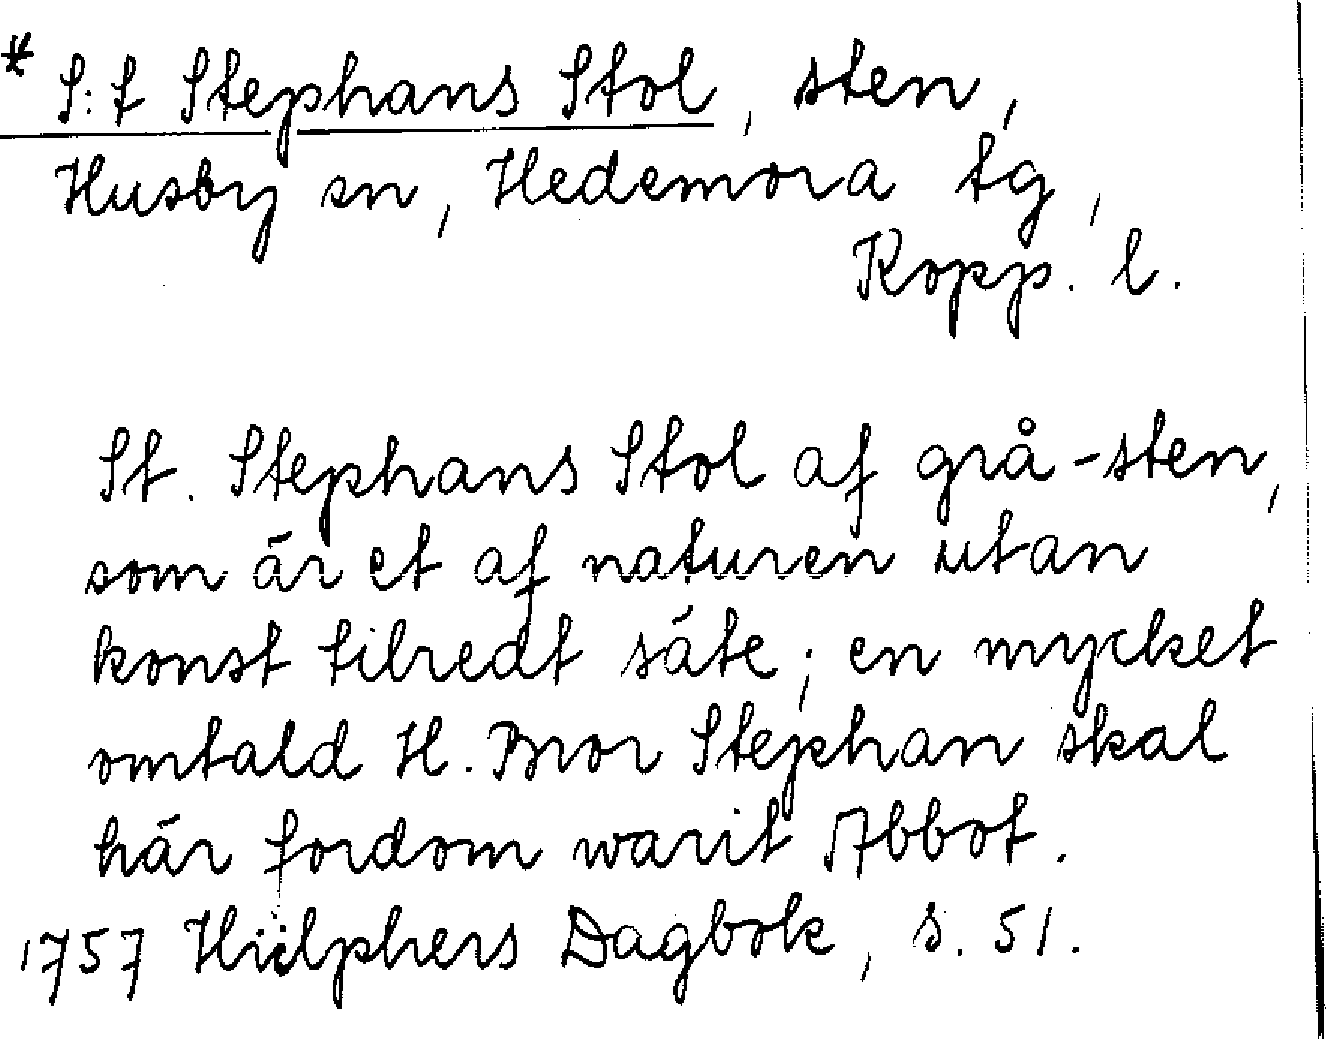 * S:t Stephans Stol, sten,
Husby sn, Hedemora tg,
Kopp. l.
St. Stephans Stol af grå-sten,
som är et af naturen utan
konst tilredt säte; en mycket
omtald H. Bror Stephan skal
här fordom warit Abbot.
1757 Hülphers Dagbok, s. 51.